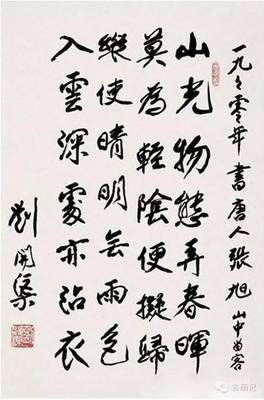 一九々零年書唐人張旭山中留客
山光物態弄春暉
莫為輕陰便擬歸
縱使晴明无雨色
入雲深處亦沾衣
劉開渠
名画记